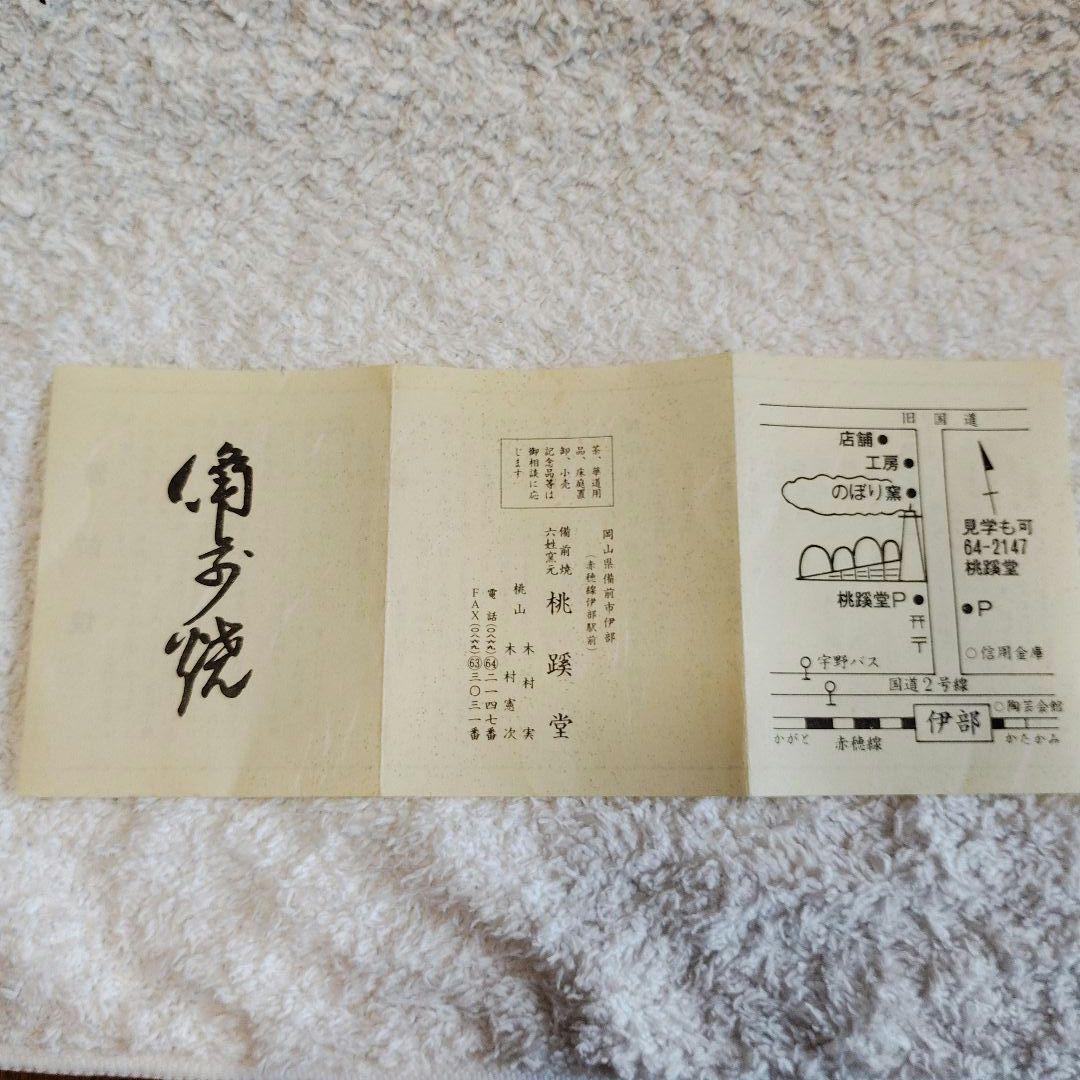 備前焼
茶、華道用
品、床庭置
卸、小売
記念品等は
御相談に応
じます
岡山県備前市伊部
(赤穂線伊部駅前)
備前焼
六姓窯元
桃蹊堂
桃山 木村実
木村憲次
電話(〇八六九)64二一四七番
FAX(〇八六九)63三〇三一番
旧国道
店舗
工房
のぼり窯
見学も可
64-2147
桃蹊堂
桃蹊堂P
P
〒
信用金庫
宇野バス
国道2号線
陶芸会館
伊部
かがと
赤穂線
かたかみ